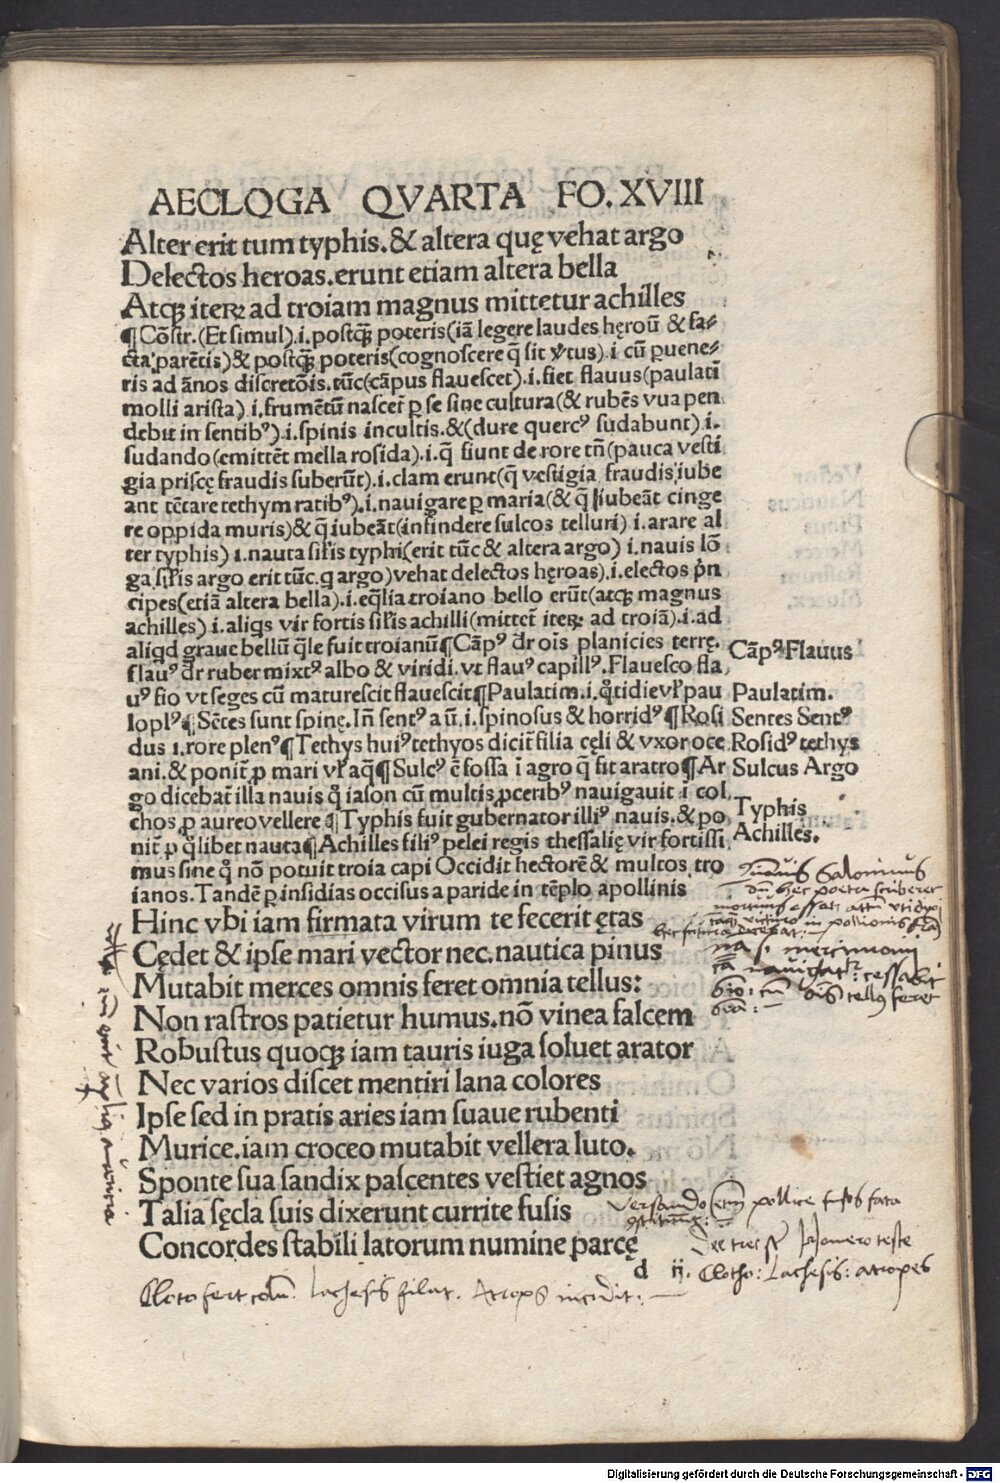 AECLOGA QVARTA FO. XVIII
Alter erit tum typhis. & altera quę vehat argo
Delectos heroas. erunt etiam altera bella
Atqꝫ iteꝝ ad troiam magnus mittetur achilles
¶ Cōstr. (Et simul) .i. postqꝫ̄ poteris (iā legere laudes hęroū & fa⸗
cta parētis) & postqꝫ̄ poteris (cognoscere q̄ sit v̓tus) .i. cū ꝑuene⸗
ris ad ānos discretōis. tūc (cāpus flauescet) .i. fiet flauus (paulati
molli arista) .i. frumētū nascet̄ ꝑ se sine cultura (& rubēs vua pen
debit in sentibꝰ) .i. spinis incultis. & (dure quercꝰ sudabunt) .i.
sudando (emittēt mella rosida) .i. q̄ fiunt de rore tn̄ (pauca vesti
gia priscę fraudis suberūt) .i. clam erunt (q̄ vestigia fraudis iube
ant tētare tethym ratibꝰ) .i. nauigare ꝑ maria (& q̄ iubeāt cinge
re oppida muris) & q̄ iubeāt (infindere sulcos telluri) .i. arare al
ter typhis) .i. nauta sil̓is typhi (erit tūc & altera argo) .i. nauis lō
ga sil̓is argo erit tūc. q̨ argo) vehat delectos hęroas) .i. electos p̓n
cipes (etiā altera bella) .i. eq̄lia troiano bello erūt (atqꝫ magnus
achilles) .i. aliqs vir fortis sil̓is achilli (mittet̄ iteꝝ ad troiā) .i. ad
aliqd graue bellū q̄le fuit troianū ¶ Cāpꝰ dr̄ oīs planicies terrę.
flauꝰ dr̄ ruber mixtꝰ albo & viridi. vt flauꝰ capillꝰ. Flauesco fla
uꝰ fio vt seges cū maturescit flauescit ¶ Paulatim .i. q̊tidie vl̓ pau
loplꝰ ¶ Sētes sunt spinę. In̄ sentꝰ a ū .i. spinosus & horridꝰ ¶ Rosi
dus .i. rore plenꝰ ¶ Tethys huiꝰ tethyos dicit̄ filia cęli & vxor oce
ani. & ponit̄ ꝓ mari vl̓ aq̄ ¶ Sulcꝰ ē fossa ī agro q̄ fit aratro ¶ Ar
go dicebat̄ illa nauis q̊ iason cū multis ꝓceribꝰ nauigauit ī col
chos ꝓ aureo vellere ¶ Typhis fuit gubernator illiꝰ nauis. & po
nit̄ ꝓ q̊libet nauta ¶ Achilles filiꝰ pelei regis thessalię vir fortissi
mus sine q̊ nō potuit troia capi Occidit hectorē & multos tro
ianos. Tandē ꝑ insidias occisus a paride in tēplo apollinis
Cāpꝰ Flauus
Paulatim.
Sentes Sentꝰ
Rosidꝰ tethys
Sulcus Argo
Typhis
Achilles.
Hinc vbi iam firmata virum te fecerit ętas
Cędet & ipse mari vector nec. nautica pinus
Mutabit merces omnis feret omnia tellus:
Non rastros patietur humus. nō vinea falcem
Robustus quoqꝫ iam tauris iuga soluet arator
Nec varios discet mentiri lana colores
Ipse sed in pratis aries iam suaue rubenti
Murice. iam croceo mutabit vellera luto.
Sponte sua sandix pascentes vestiet agnos
Talia sęcla suis dixerunt currite fusis
Concordes stabili fatorum numine parcę
d ij.
Salominus
dū hec poeta scriberet
mortuus esset
in pollionis
hec futura dicebat:
mercimonii
cessabit
tellꝰ feret
versando pollice fusos fata
Homero teste
Clotho: Lachesis: atropos
Cloto fert colū. Lachesis filat. Atropos incidit:
Digitalisierung gefördert durch die Deutsche Forschungsgemeinschaft - DFG